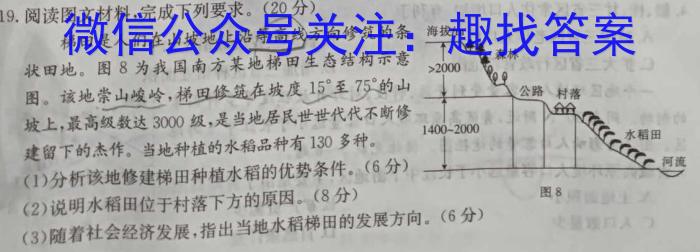 19. 阅读图文材料,完成下列要求。(20 分)
微信公众号关注：趣找答案
梯田是人们在山坡地上沿等高线方向修筑的条
状田地。图 8 为我国南方某地梯田生态结构示意
图。该地崇山峻岭,梯田修筑在坡度 15°至 75°的山
坡上,最高级数达 3000 级,是当地居民世世代代不断修
建留下的杰作。当地种植的水稻品种有 130 多种。
(1)分析该地修建梯田种植水稻的优势条件。(6 分)
(2)说明水稻田位于村落下方的原因。(8 分)
(3)随着社会经济发展,指出当地水稻梯田的发展方向。(6 分)
海拔
森林
>2000
公路
村落
1400~2000
水稻田
河流
图 8